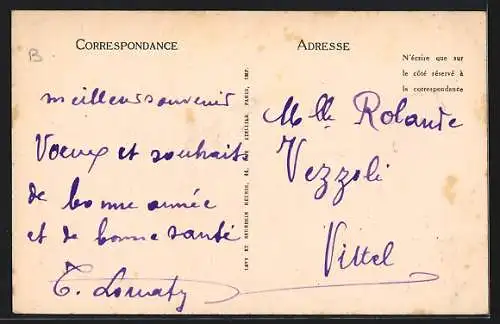 B
CORRESPONDANCE
meilleurs souvenirs
Voeux et souhaits
de bonne année
et de bonne santé
LEVY ET NEURDEIN RÉUNIS, 44, RUE LETELLIER, PARIS, IMP.
ADRESSE
N'écrire que sur
le côté réservé à
la correspondance
Mlle Rolande
Vezzoli
Vittel